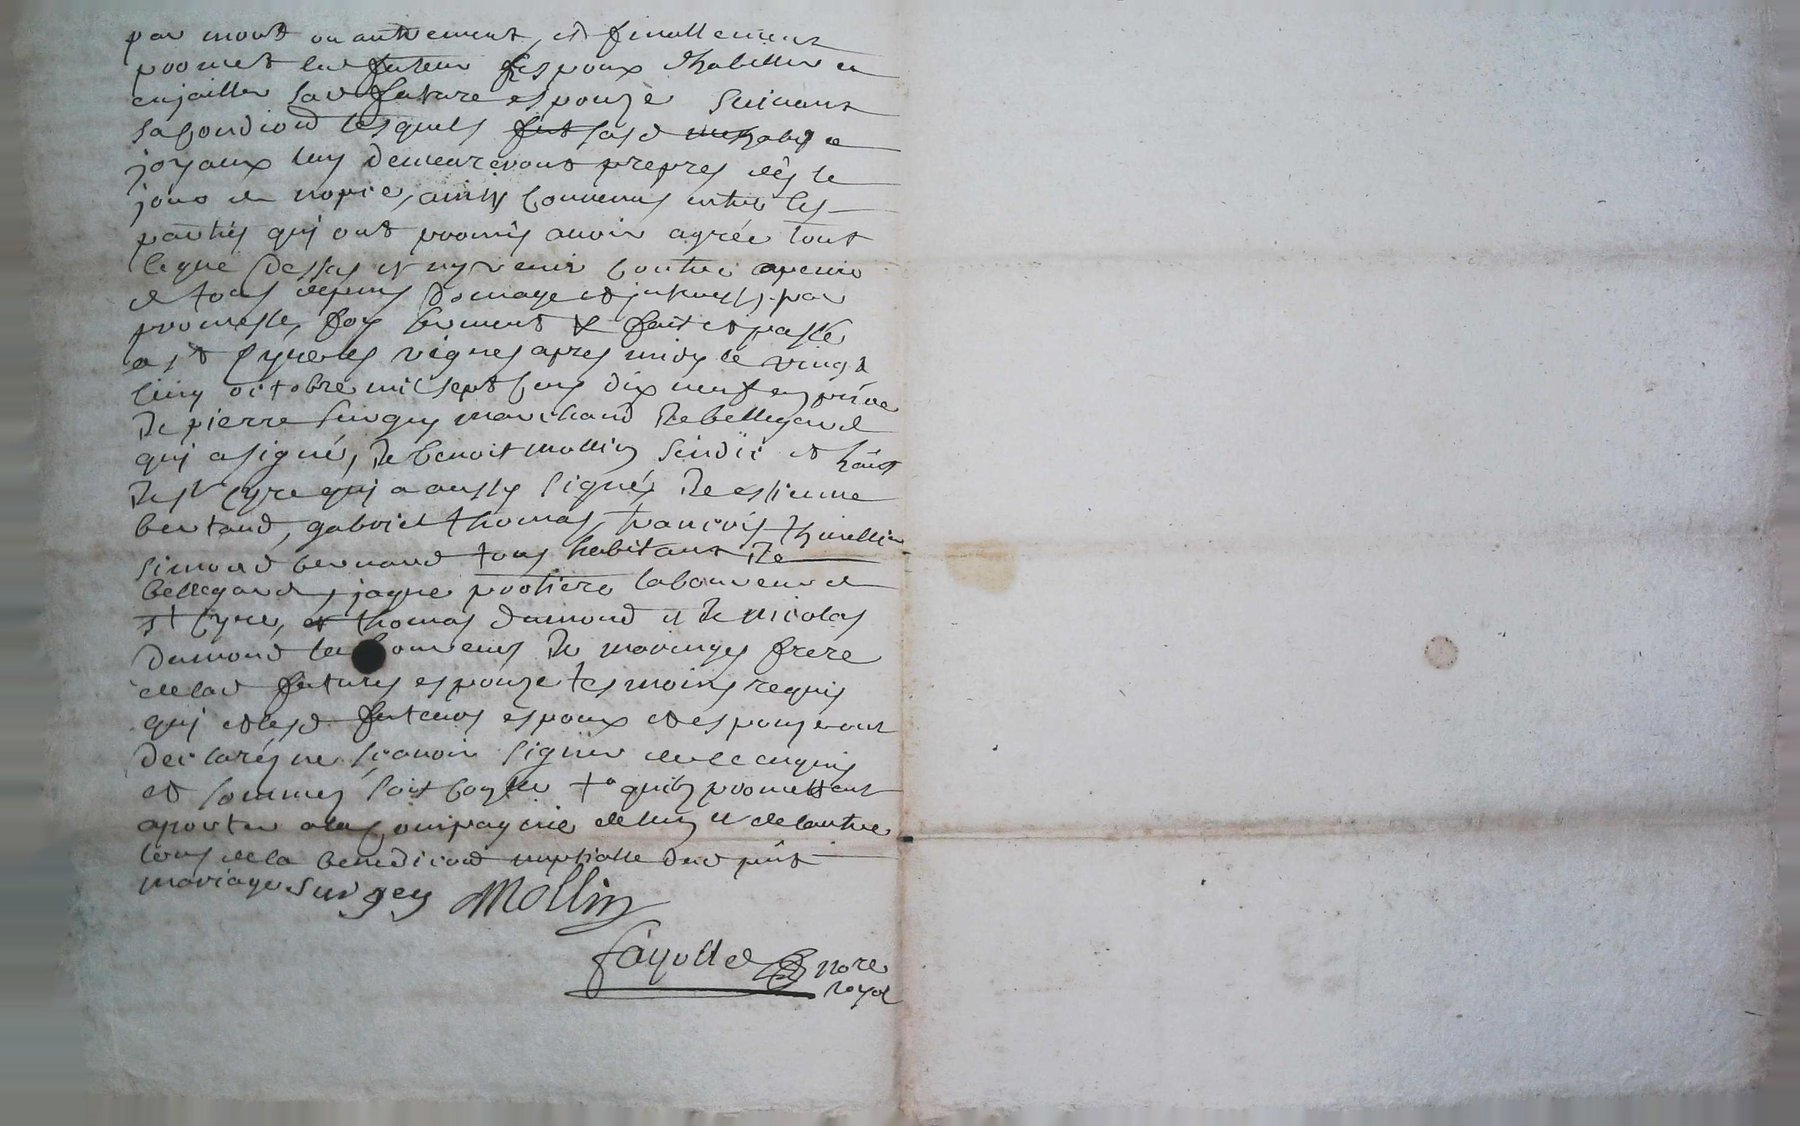 par mort ou autrement, et finallement
promet led futeur espoux dhabiller et
enjailler sad future espouze suivant
sa condiond lesquels habis et
joyaux luy demeureront propres dès le
jour de nopce, ainsy convenus entre les
parties quy ont promis avoir agrée tout
ceque dessus et ny venir contre apeine
de tous depens domage et interests par
promesse, foy serment & fait et passé
a st Cyre les vignes apres midy le vingt
cinq octobre mil sept cens dix neuf en pnce
De pierre surgey marchand De bellegarde
qui a signé, De benoit mollin sindic et
De st Cyre qui a aussy signé, De estienne
bertand, gabriel thomas, francois
simond bernard tous habitant De
bellegarde, jaque protiere laboureur de
st Cyre, thomas dumond et De nicolas
dumond laboureurs De maringes frere
de lad future espouze tesmoins requis
qui et lesd futeurs espoux et espouze ont
declarés ne scavoir signer de ce enquis
et sommés soit quils promettent
aporter a la compagnie de luy et de lautre
lors de la benediond nuptialle dud pnt
mariage surgey Mollin
fayolle nore
royal